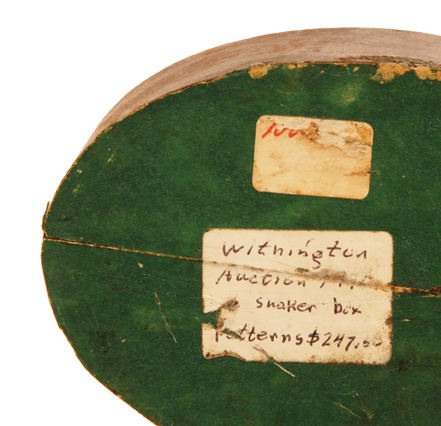 100
Withington
Auction
shaker box
Patterns $247.50